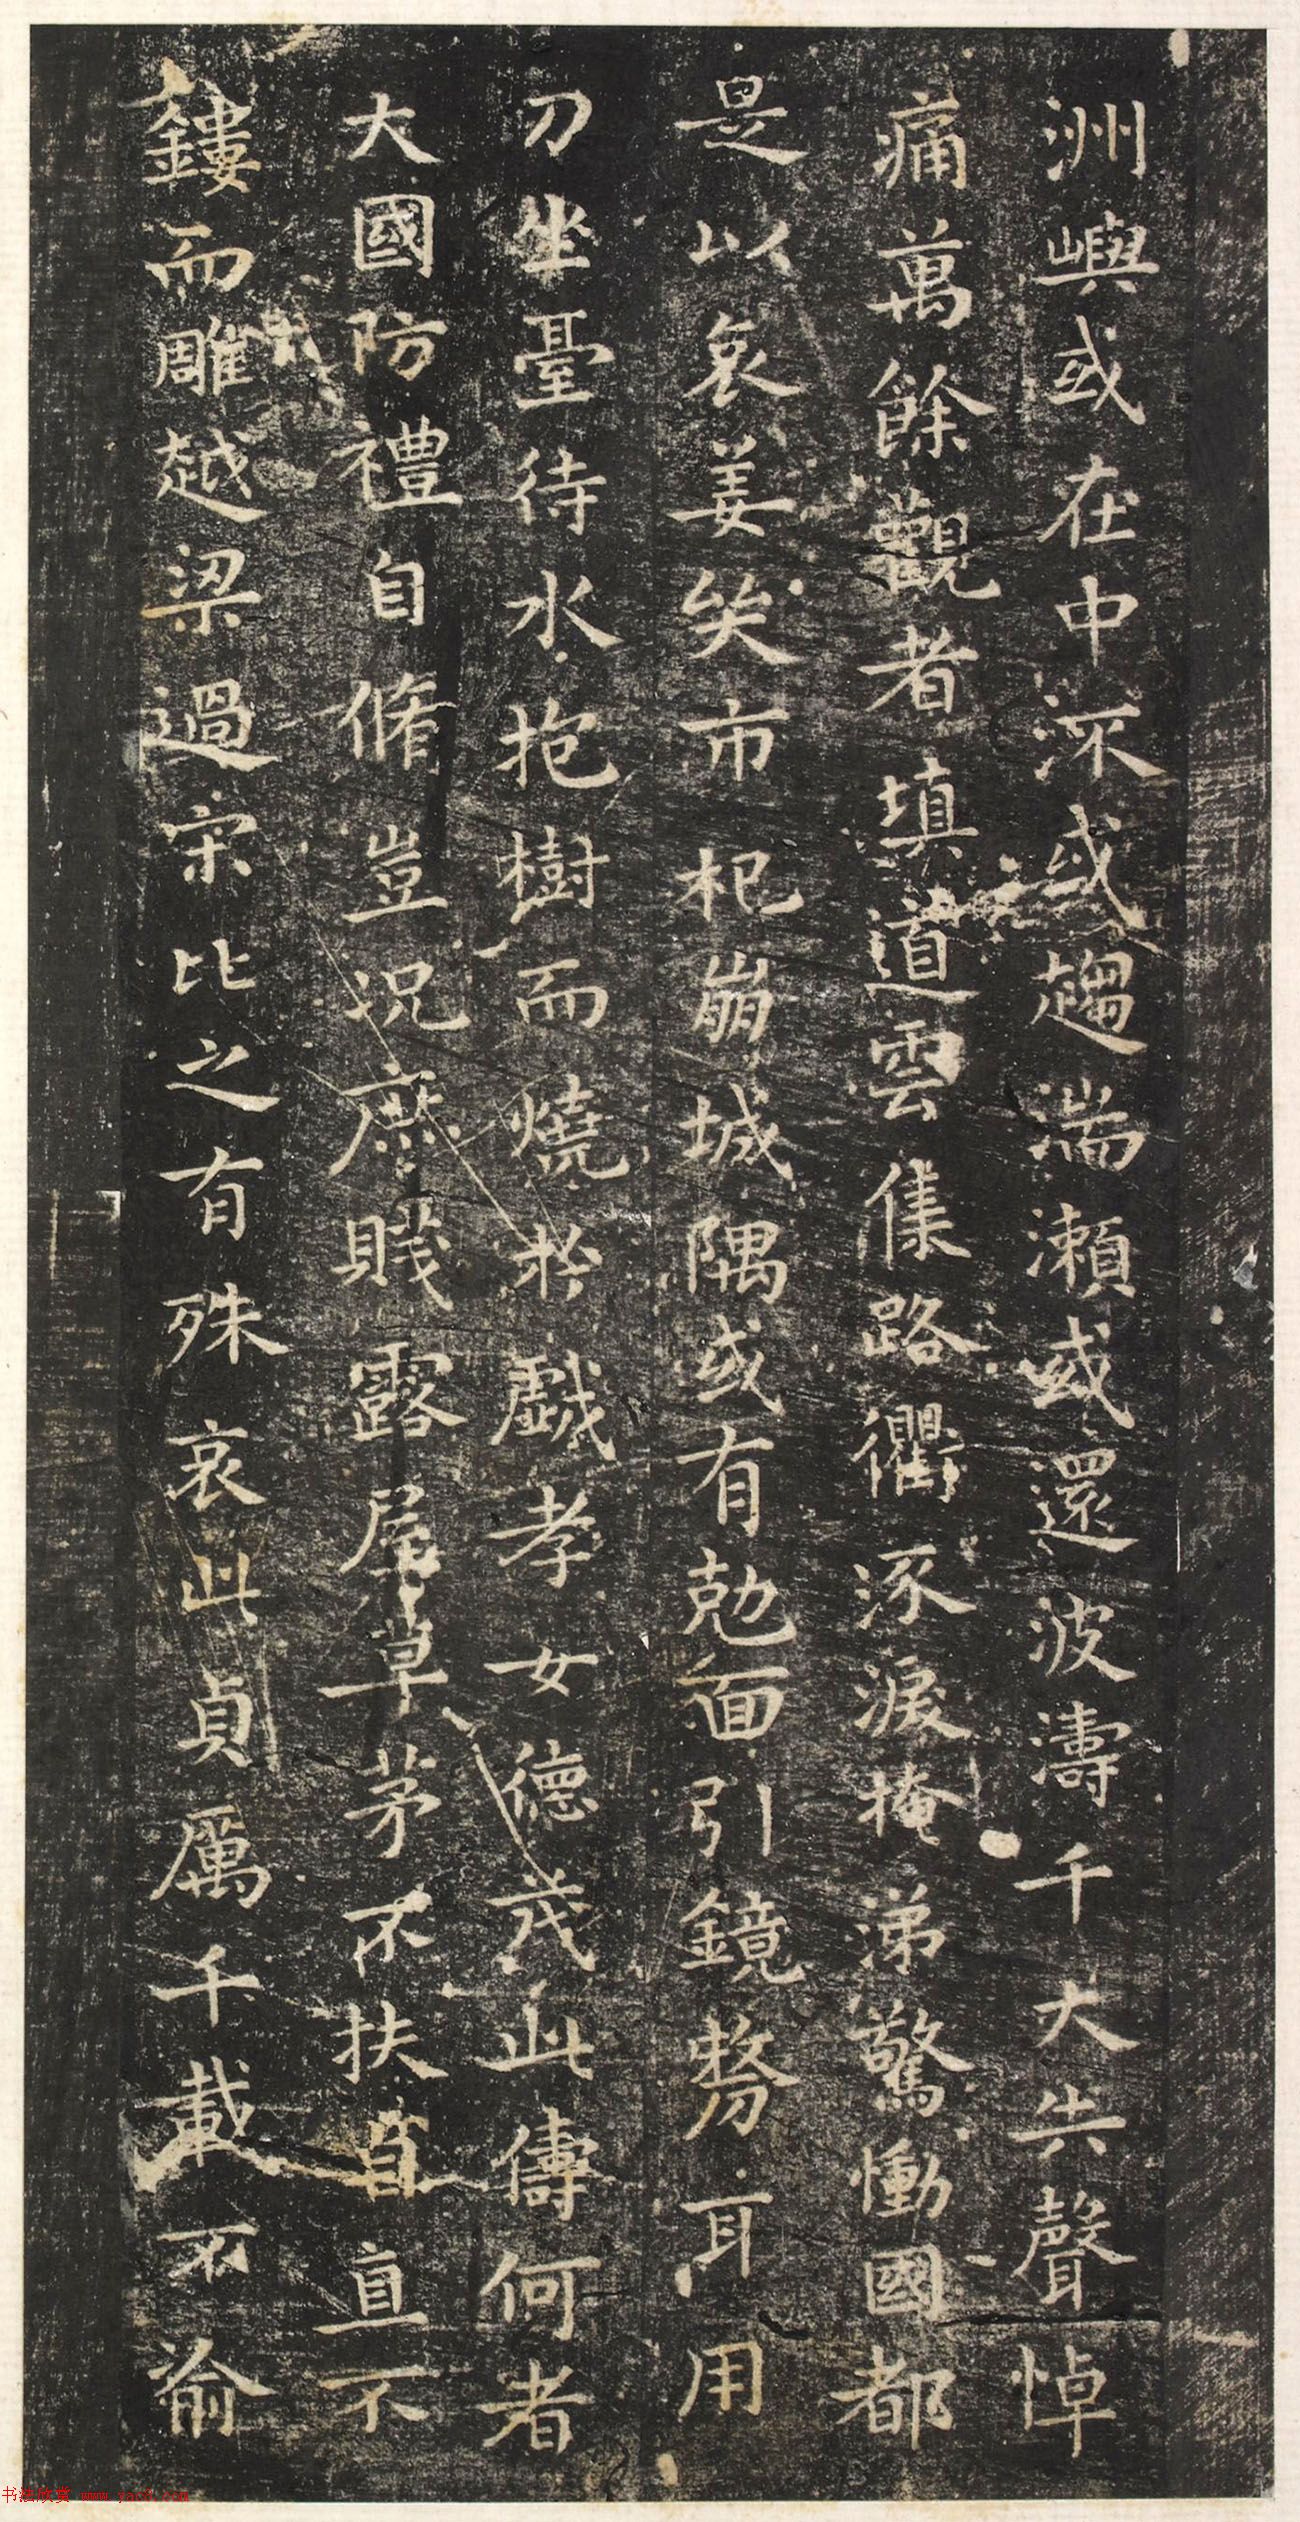 洲嶼或在中流或趨湍瀨或還波濤千大失聲悼
痛萬餘觀者填道雲集路衢泳淚掩涕驚慟國都
是以哀姜哭市杞崩城隅或有剋面引鏡剺耳用
刀坐臺待水抱樹而燒於戲孝女德茂此儔何者
大國防禮自脩豈況庶賤露屋草茅不扶自直不
鏤而雕越梁過宋比之有殊哀此貞厲千載不渝
书法欣赏 www.yac8.com